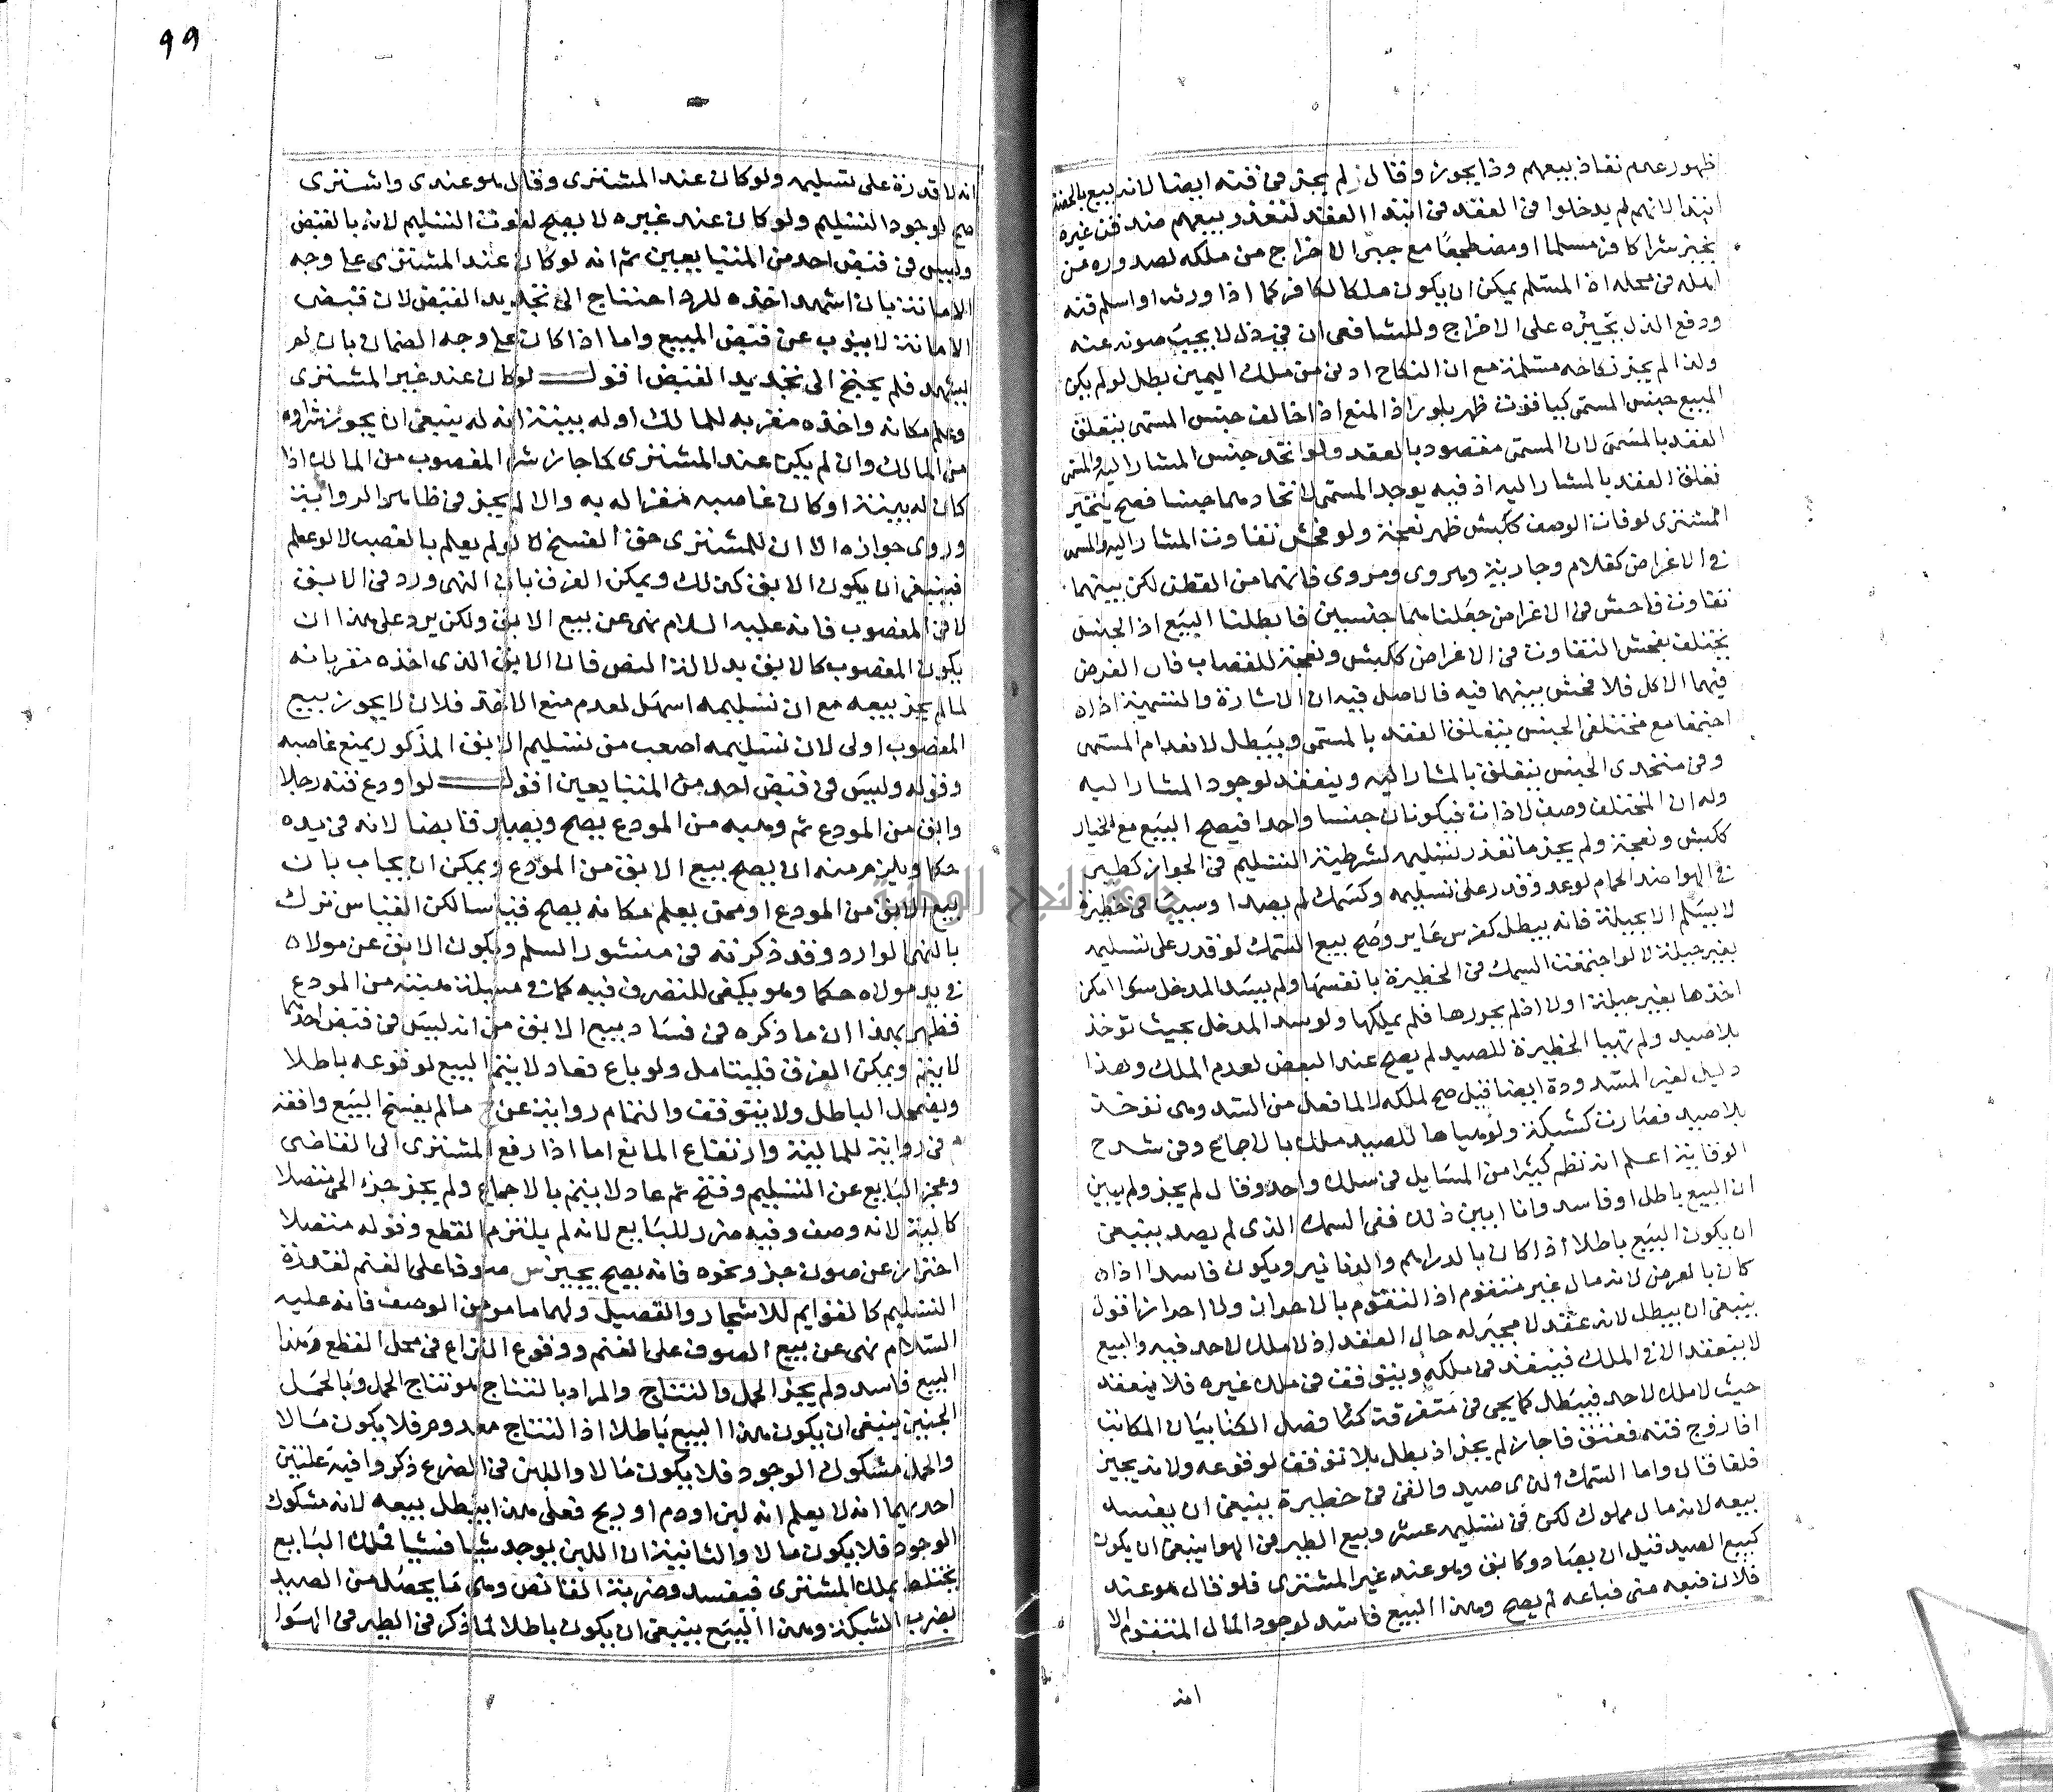 ظهور عدم نفاذ بيعهم وذا يجوز وقال ز لم يجز في قنه ايضا لانه بيع بالحصة
ابتدا لانهم لم يدخلوا في العقد في ابتدا العقد لتعذر بيعهم ضد قن غيره
يجيز شرا كافر مسلما او مصحفا مع جبر الاخراج من ملكه لصدوره من
اهله في محله اذ المسلم يمكن ان يكون ملكا لكافر كما اذا ورثه او اسلم قنه
ودفع الذل بجبره على الاخراج وللشافعي ان فيه ذل لا يجب صونه عنه
ولذا لم يجز نكاحه مسلمة مع ان النكاح ادنى من ملك اليمين بطل لو لم يكن
المبيع جنس المسمى كياقوت ظهر بلورا اذ المبيع اذا خالف جنس المسمى يتعلق
العقد بالمسمى لان المسمى مقصود بالعقد ولو اتحد جنس المشار اليه والمسمى
تعلق العقد بالمشار اليه اذ فيه يوجد المسمى لاتحادهما جنسا فصح يتخير
المشتري لو فات الوصف ككبش ظهر نعجة ولو فحش تفاوت المشار اليه والمسمى
في الاغراض كغلام وجارية وهروي ومروي فانهما من القطن لكن بينهما
تفاوت فاحش في الاغراض جعلناهما جنسين فابطلنا البيع اذ الجنس
يختلف بفحش التفاوت في الاغراض ككبش ونعجة للقصاب فان الغرض
فيهما الاكل فلا فحش بينهما فيه فالاصل فيه ان الاشارة والتسمية اذا
اجتمعا مع مختلفي الجنس يتعلق العقد بالمسمى ويبطل لانعدام المسمى
وفي متحدي الجنس يتعلق بالمشار اليه وينعقد لوجود المشار اليه
وله ان المختلف وصف لا ذات فيكونان جنسا واحدا فيصح البيع مع الخيار
ككبش ونعجة ولم يجز ما تعذر تسليمه لشرطية التسليم في الجواز كطير
في الهوا ضد الحمام لو عد وقدر على تسليمه وكسمك لم يصد او سيب في حظيرة
لا يسلم الا بحيلة فانه يبطل كفرس عاير وصح بيع السمك لو قدر على تسليمه
بغير حيلة لا لو اجتمعت السمك في الحظيرة بانفسها ولم يسد المدخل سوا امكن
اخذها بغير حيلة او لا اذ لم يحرزها فلم يملكها ولو سد المدخل بحيث توخذ
بلا صيد ولم تهيا الحظيرة للصيد لم يصح عند البعض لعدم الملك وهذا
دليل لغير المسدودة ايضا قيل صح لملكه لما فعل من السد وهي توخذ
بلا صيد فصارت كشبكة ولو هياها للصيد ملك بالاجماع وفي شرح
الوقاية اعلم انه نظم كثيرا من المسايل في سلك واحد وقال لم يجز ولم يبين
ان البيع باطل او فاسد وانا ابين ذلك ففي السمك الذي لم يصد ينبغي
ان يكون البيع باطلا اذا كان بالدراهم والدنانير ويكون فاسدا اذا
كان بالعرض لانه مال غير متقوم اذ التقوم بالاحراز ولا احراز اقول
ينبغي ان يبطل لانه عقد لا مجيز له حال العقد اذ لا ملك لاحد فيه والبيع
لا ينعقد الا في الملك فينعقد في ملكه ويتوقف في ملك غيره فلا ينعقد
حيث لا ملك لاحد فيبطل كما يجي في متفرقات فصل الكتابيان المكاتب
اذا زوج قنه فعتق فاجاز لم يجز اذ بطل بلا توقف لوقوعه ولا مجيز
فلذا قال واما السمك الذي صيد والقي في حظيرة ينبغي ان يفسد
بيعه لانه مال مملوك لكن في تسليمه عسر وبيع الطير في الهوا ينبغي ان يكون
كبيع الصيد قبل ان يصاد وكابق وهو عند غير المشتري فلو قال هو عند
فلان فبعه مني فباعه لم يصح وهذا البيع فاسد لوجود المال المتقوم الا
انه
99
انه لا قدرة على تسليمه ولو كان عند المشتري وقال هو عندي واشترى
صح لوجود التسليم ولو كان عند غيره لا يصح لفوت التسليم لانه بالقبض
وليس في قبض احد من المتبايعين ثم انه لو كان عند المشتري على وجه
الامانة بان اشهد اخذه للرد احتاج الى تجديد القبض لان قبض
الامانة لا ينوب عن قبض المبيع واما اذا كان على وجه الضمان بان لم
يشهد فلم يحتج الى تجديد القبض اقول لو كان عند غير المشتري
وعلم مكانه واخذه مقر به للمالك او له بينة انه له ينبغي ان يجوز شراوه
من المالك وان لم يكن عند المشتري كما جاز شرا المغصوب من المالك اذا
كان له بينة او كان غاصبه مقرا له به والا لم يجز في ظاهر الرواية
وروي جوازه الا ان للمشتري حق الفسخ لو لم يعلم بالغصب لا لو علم
فينبغي ان يكون الابق كذلك ويمكن الفرق بان النهي ورد في الابق
لا في المغصوب فانه عليه السلام نهى عن بيع الابق ولكن يرد على هذا ان
يكون المغصوب كالابق بدلالة النص فان الابق الذي اخذه مقر بانه
لما لم يجز بيعه مع ان تسليمه اسهل لعدم منع الاخذ فلان لا يجوز بيع
المغصوب اولى لان تسليمه اصعب من تسليم الابق المذكور يمنع غاصبه
وقوله وليس في قبض احد من المتبايعين اقول لو اودع قنه رجلا
وابق من المودع ثم وهبه من المودع يصح ويصير قابضا لانه في يده
حكما ويلزم منه ان يصح بيع الابق من المودع ويمكن ان يجاب بان
بيع الابق من المودع او ممن يعلم مكانه يصح قياسا لكن القياس ترك
بالنهي الوارد وقد ذكرته في منشور السلم ويكون الابق عن مولاه
في يد مولاه حكما وهو يكفي للتصرف فيه كما في مسيلة هبته من المودع
فظهر بهذا ان ما ذكره في فساد بيع الابق من انه ليس في قبض احدهما
لا يتم ويمكن الفرق فليتامل ولو باع فعاد لا يتم البيع لوقوعه باطلا
ويضمحل الباطل ولا يتوقف والتمام رواية عن ح ما لم يفسخ البيع وافقه
م في رواية للمالية وارتفاع المانع اما اذا رفع المشتري الى القاضي
وعجز البايع عن التسليم وفسخ ثم عاد لا يتم بالاجماع ولم يجز جزء الحي متصلا
كالية لانه وصف وفيه ضرر للبايع لانه لم يلتزم القطع وقوله متصلا
احتراز عن صوف جز ونحوه فانه يصح يجيز س صوفا على الغنم لقدرة
التسليم كالقوايم للاشجار والقصيل ولهما ما مر من الوصف فانه عليه
السلام نهى عن بيع الصوف على الغنم ووقوع النزاع في محل القطع وهذا
البيع فاسد ولم يجز الحمل والنتاج والمراد بالنتاج هو نتاج الحمل وبالحمل
الجنين ينبغي ان يكون هذا البيع باطلا اذ النتاج معدوم فلا يكون مالا
والحمل مشكوك الوجود فلا يكون مالا واللبن في الضرع ذكروا فيه علتين
احديهما انه لا يعلم انه لبن او دم او ريح فعلى هذا يبطل بيعه لانه مشكوك
الوجود فلا يكون مالا والثانية ان اللبن يوجد شيا فشيا فملك البايع
يختلط بملك المشتري فيفسد وضربة القانص وهي ما يحصل من الصيد
بضرب الشبكة وهذا البيع ينبغي ان يكون باطلا لما ذكر في الطير في الهوا